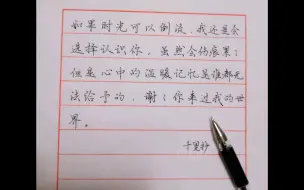 如果时光可以倒流，我还是会
选择认识你，虽然会伤痕累累；
但是心中的温暖记忆是谁都无
法给予的，谢谢你来过我的世
界。
十里钞